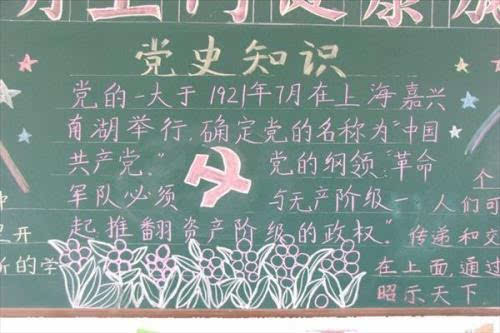 党史知识
党的一大于1921年7月在上海嘉兴
南湖举行,确定党的名称为"中国
共产党。" 党的纲领"革命
军队必须 与无产阶级一
起推翻资产阶级的政权"。
个
人们可
传递和交
在上面,通过
昭示天下
开
的学